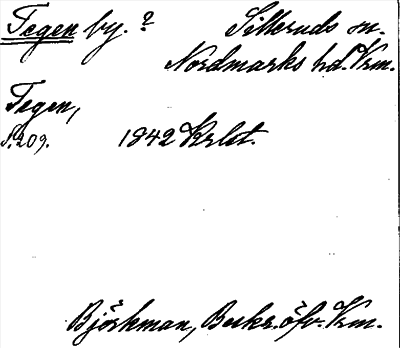 Tegen by. ? Silleruds sn.
Nordmarks hd. Vrm.
Tegen,
S. 209. 1842 Krlst.
Björkman, Beskr. öfv. Vrm.